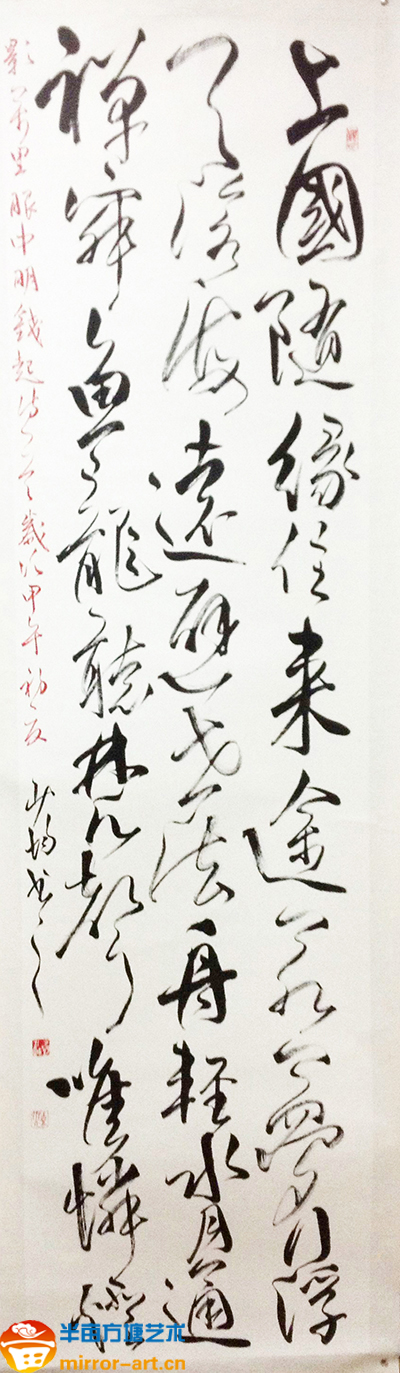 上國隨緣住來途若夢行浮
天滄海遠避世法舟輕水月通
禪寂魚龍聽梵聲唯憐燈
影萬里眼中明錢起詩一首歲次甲午初夏
書之
半亩方塘艺术
mirror-art.cn